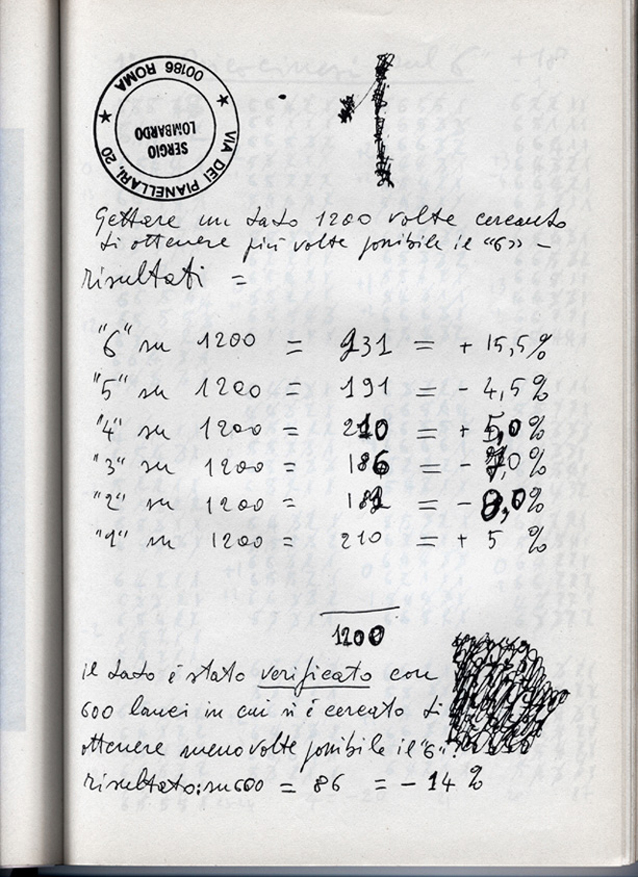 VIA DEI PIANELLARI, 20 ★ 00186 ROMA ★
SERGIO
LOMBARDO
1
Gettare un dado 1200 volte cercando
di ottenere più volte possibile il "6" –
risultati =
"6" su 1200 = 231 = + 15,5%
"5" su 1200 = 191 = - 4,5%
"4" su 1200 = 210 = + 5,0%
"3" su 1200 = 186 = - 7,0%
"2" su 1200 = = - 8,0%
"1" su 1200 = 210 = + 5 %
1200
il dado è stato verificato con
600 lanci in cui si è cercato di
ottenere meno volte possibile il "6".
risultato: su 600 = 86 = - 14 %